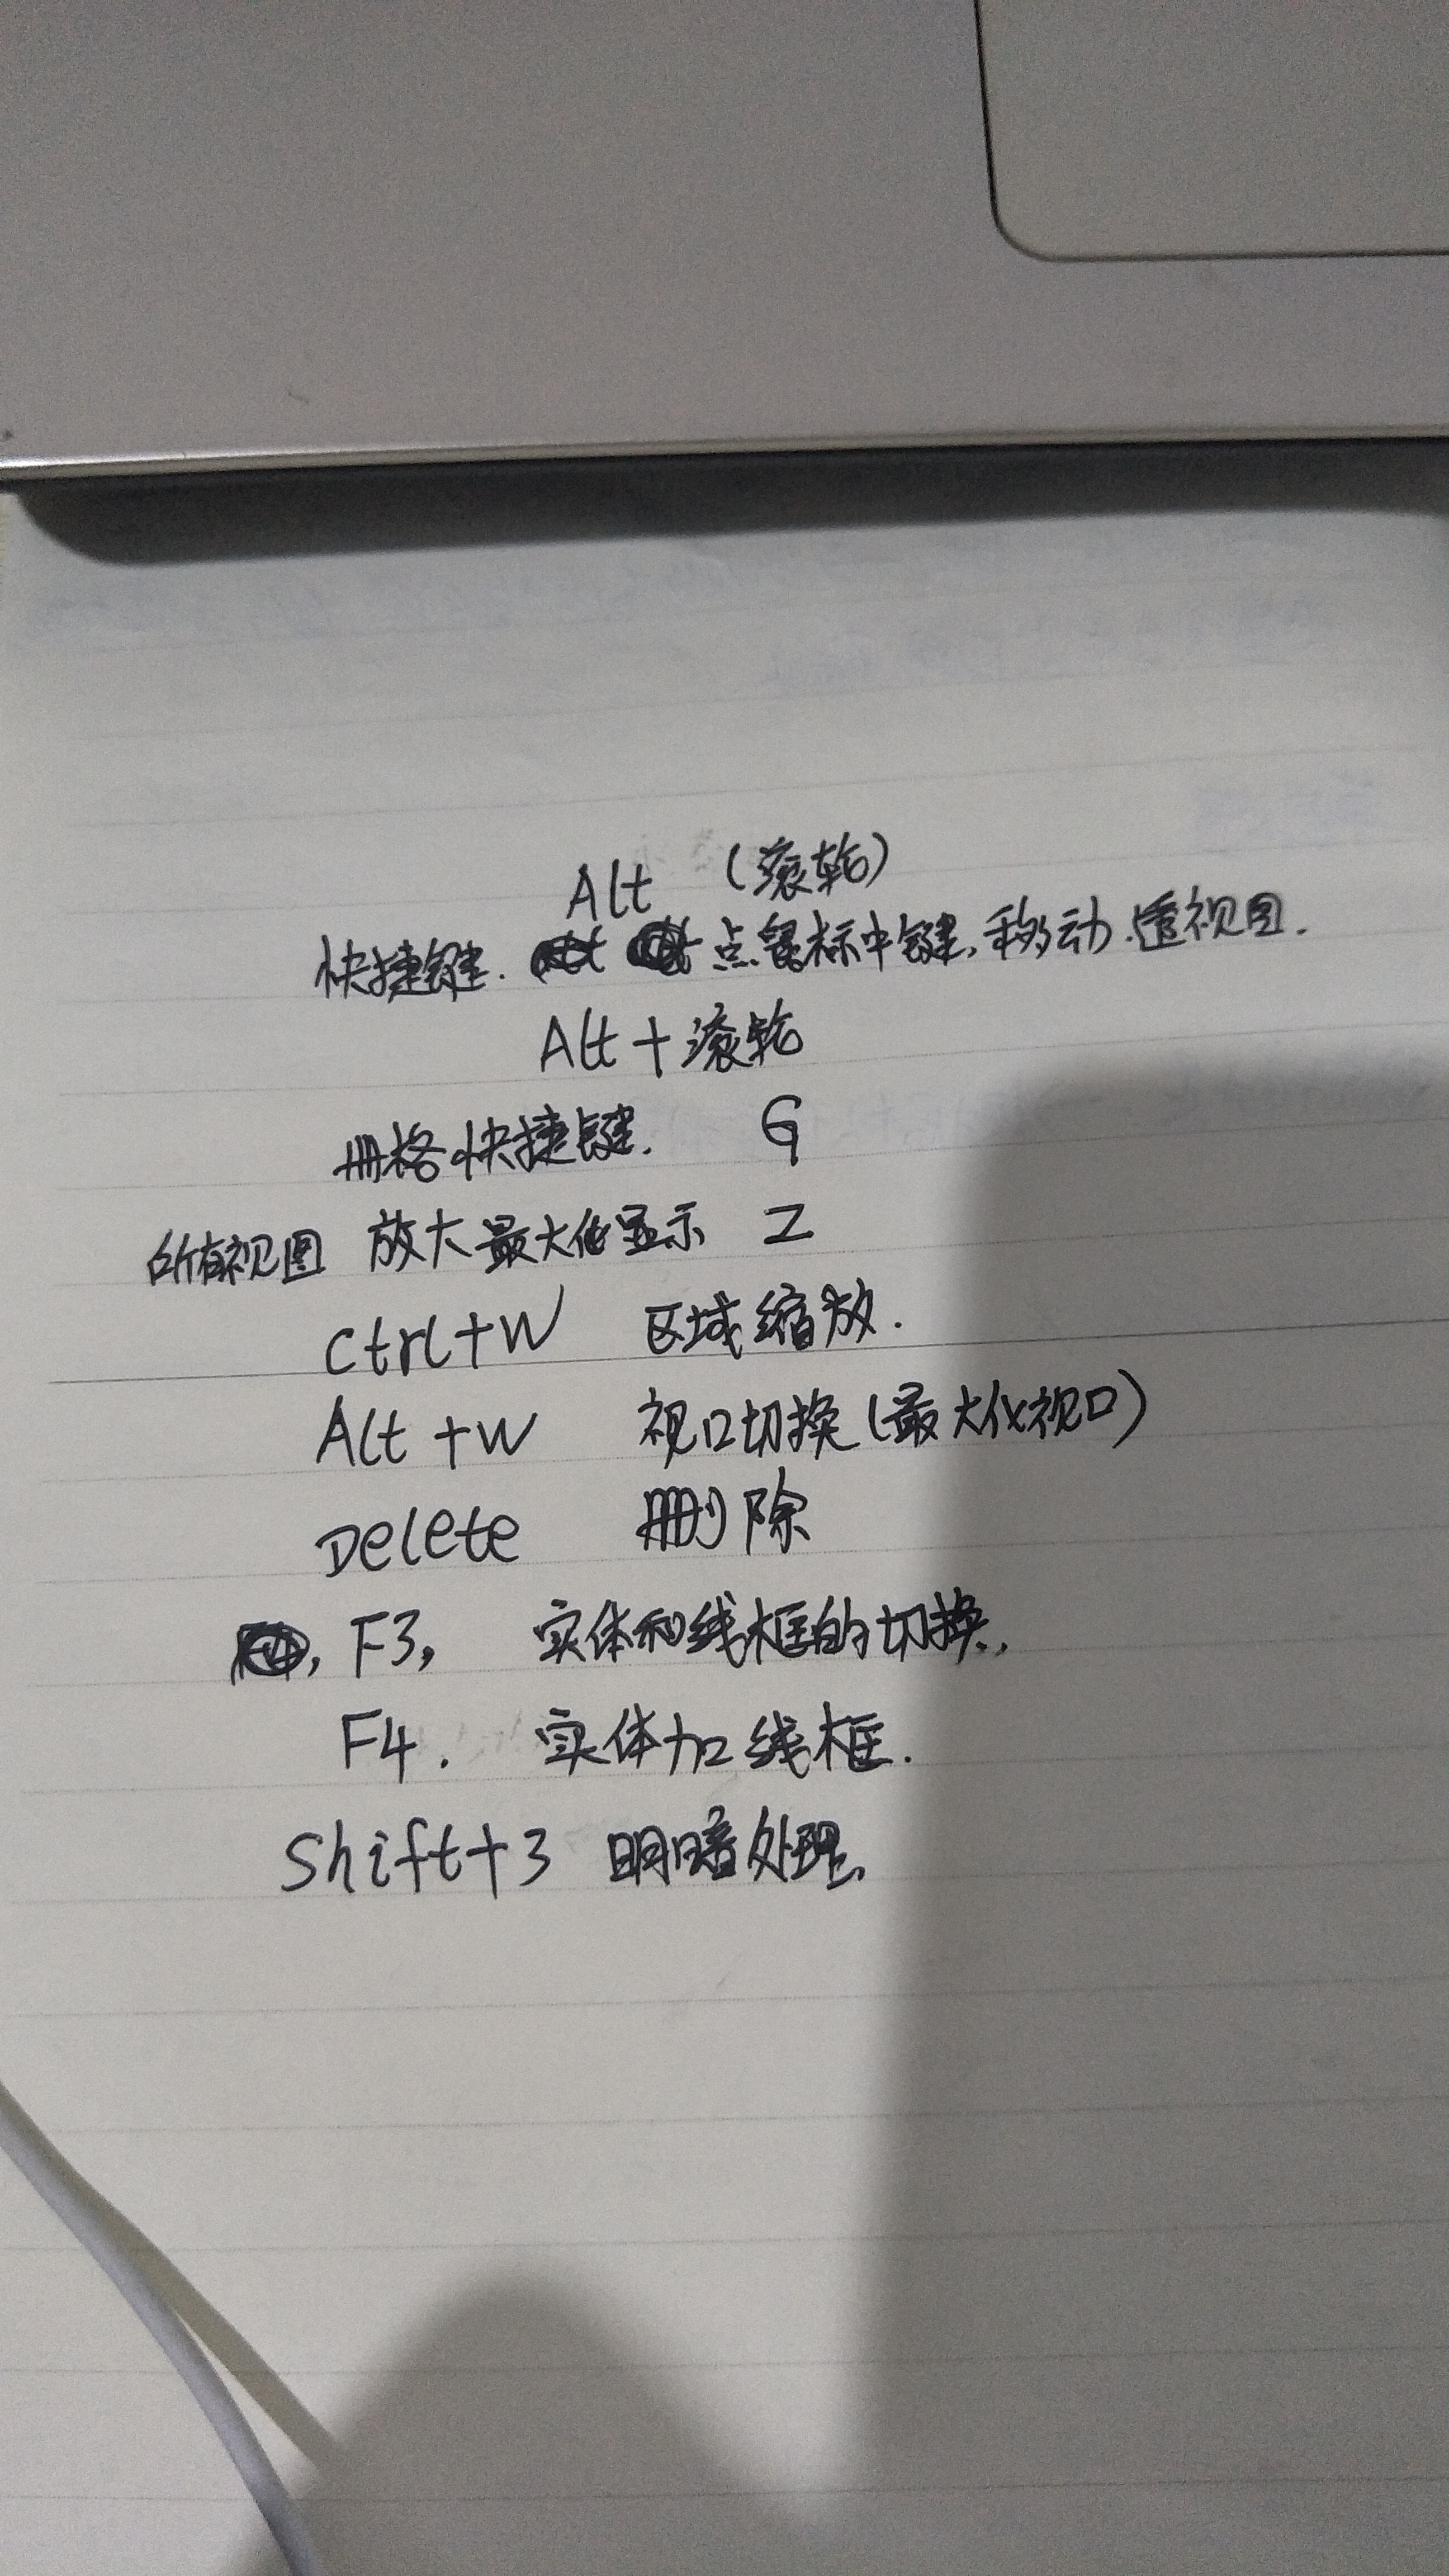 Alt (滚轮)
快捷键. 点鼠标中键, 移动.透视图.
Alt+滚轮
栅格快捷键. G
所有视图 放大最大化显示 Z
Ctrl+W 区域缩放.
Alt+W 视口切换(最大化视口)
Delete 删除
, F3, 实体和线框的切换.,
F4. 实体加线框.
Shift+3 明暗处理.